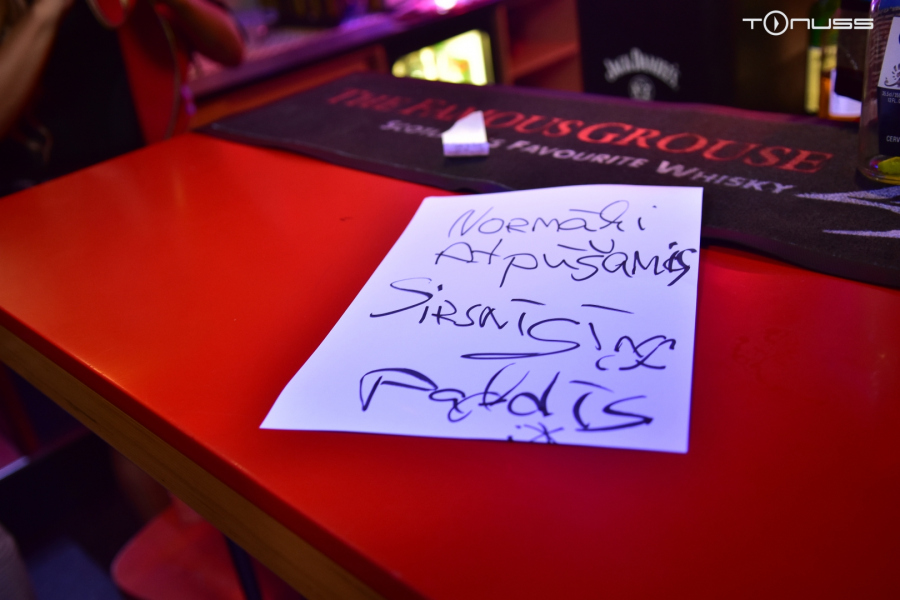 TONUSS
JACK DANIEL'S
THE FAMOUS GROUSE
FAVOURITE WHISKY
Normāli
Atpūšamies
Sirsnīgi
Paldies